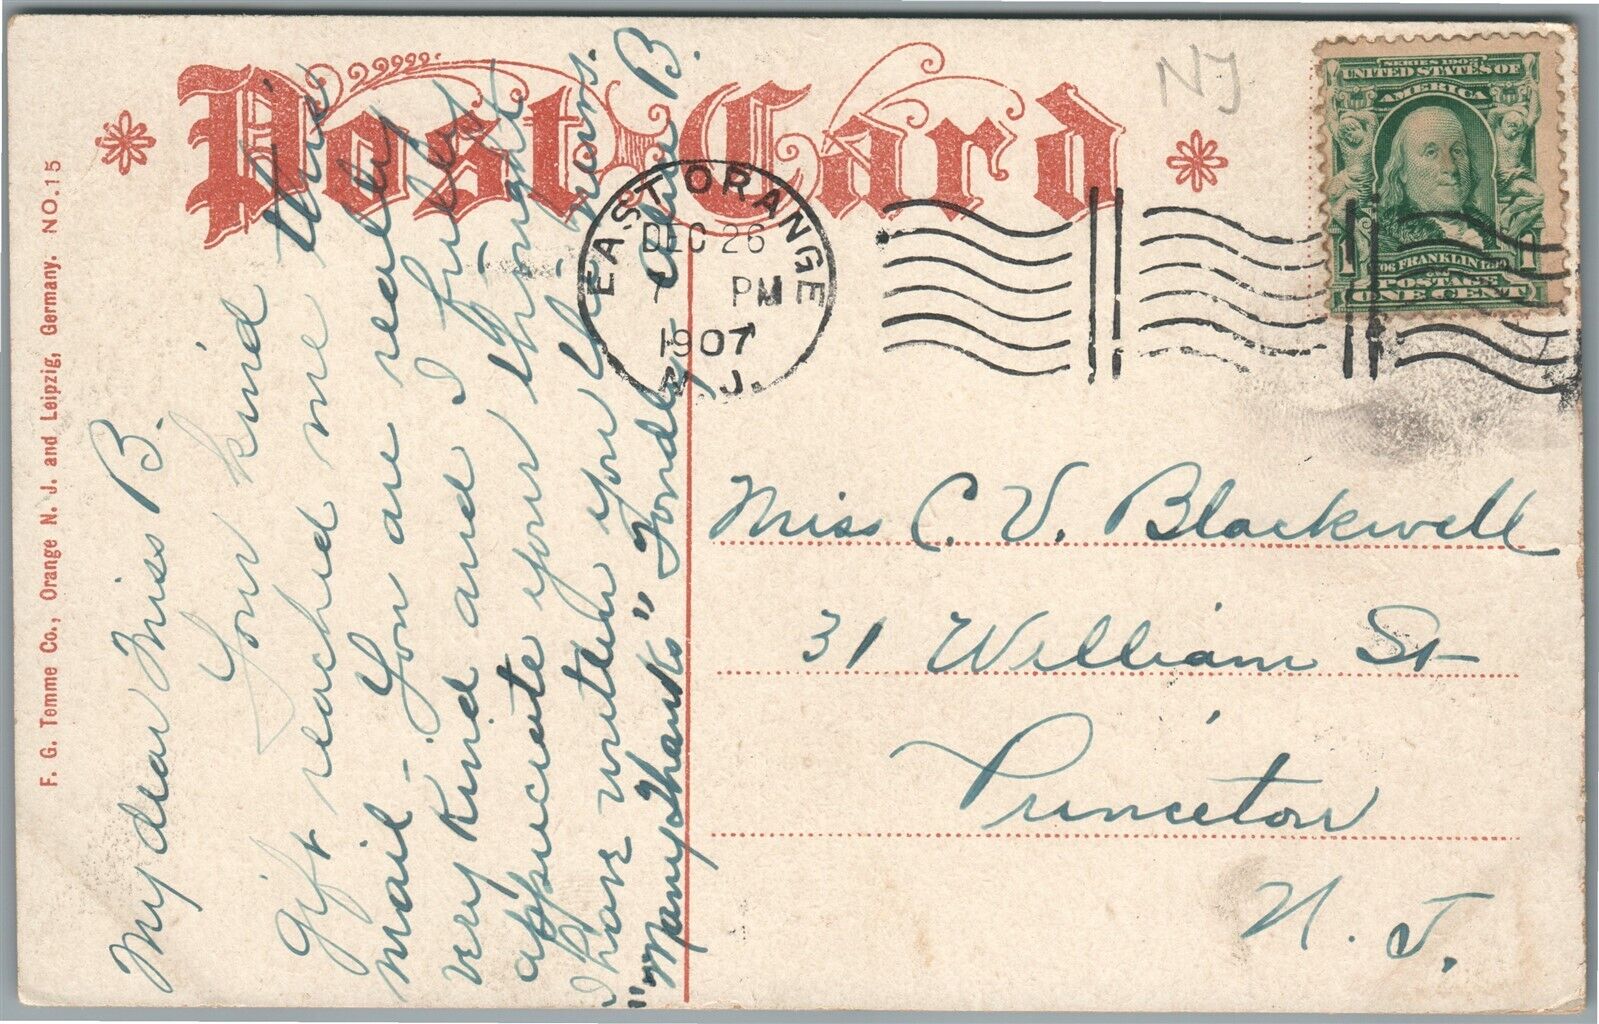 Post Card
NJ
SERIES 1902
UNITED STATES OF
AMERICA
FRANKLIN
POSTAGE
1 1
ONE CENT
EAST ORANGE
DEC 26
PM
1907
N. J.
F. G. Temme Co., Orange N. J. and Leipzig, Germany. NO. 15
My dear Miss B.
Your kind
gift reached me thru
mail - You are really
very kind and I fully
appreciate your thought
I have written you he
hours.
"Many Thanks" Fondly
B.
Miss C. V. Blackwell
31 William St
Princeton
N. J.